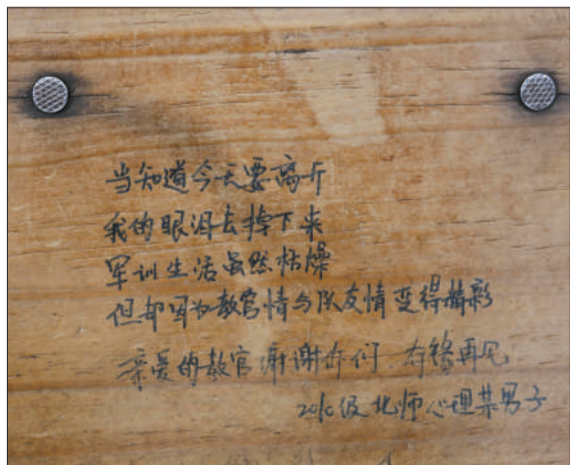 当知道今天要离开
我的眼泪去掉下来
军训生活虽然枯燥
但却因为教官情与队友情变得精彩
亲爱的教官谢谢你们 有缘再见
2010级北师心理某男子